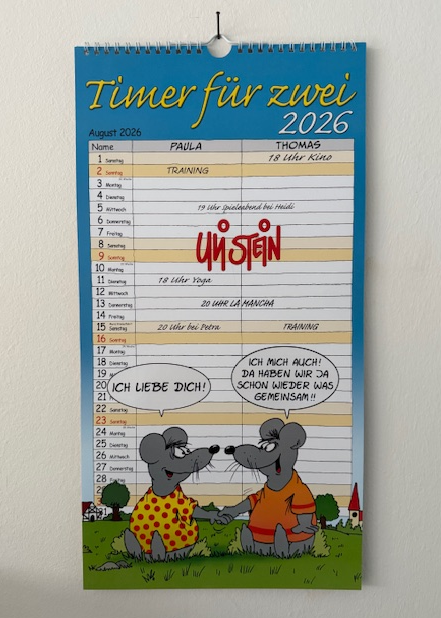 Timer für zwei
2026
August 2026
Name PAULA THOMAS
1 Samstag 18 Uhr Kino
2 Sonntag TRAINING
3 Montag
4 Dienstag
5 Mittwoch 19 Uhr Spieleabend bei Heidi
6 Donnerstag
7 Freitag
8 Samstag
9 Sonntag
ULI STEIN
10 Montag
11 Dienstag 18 Uhr Yoga
12 Mittwoch
13 Donnerstag 20 UHR LA MANCHA
14 Freitag
15 Samstag 20 Uhr bei Petra TRAINING
16 Sonntag
17 Montag
18 Dienstag
19
20
21
22 Samstag
23 Sonntag
24 Montag
25 Dienstag
26 Mittwoch
27 Donnerstag
28
ICH LIEBE DICH!
ICH MICH AUCH!
DA HABEN WIR JA
SCHON WIEDER WAS
GEMEINSAM!!